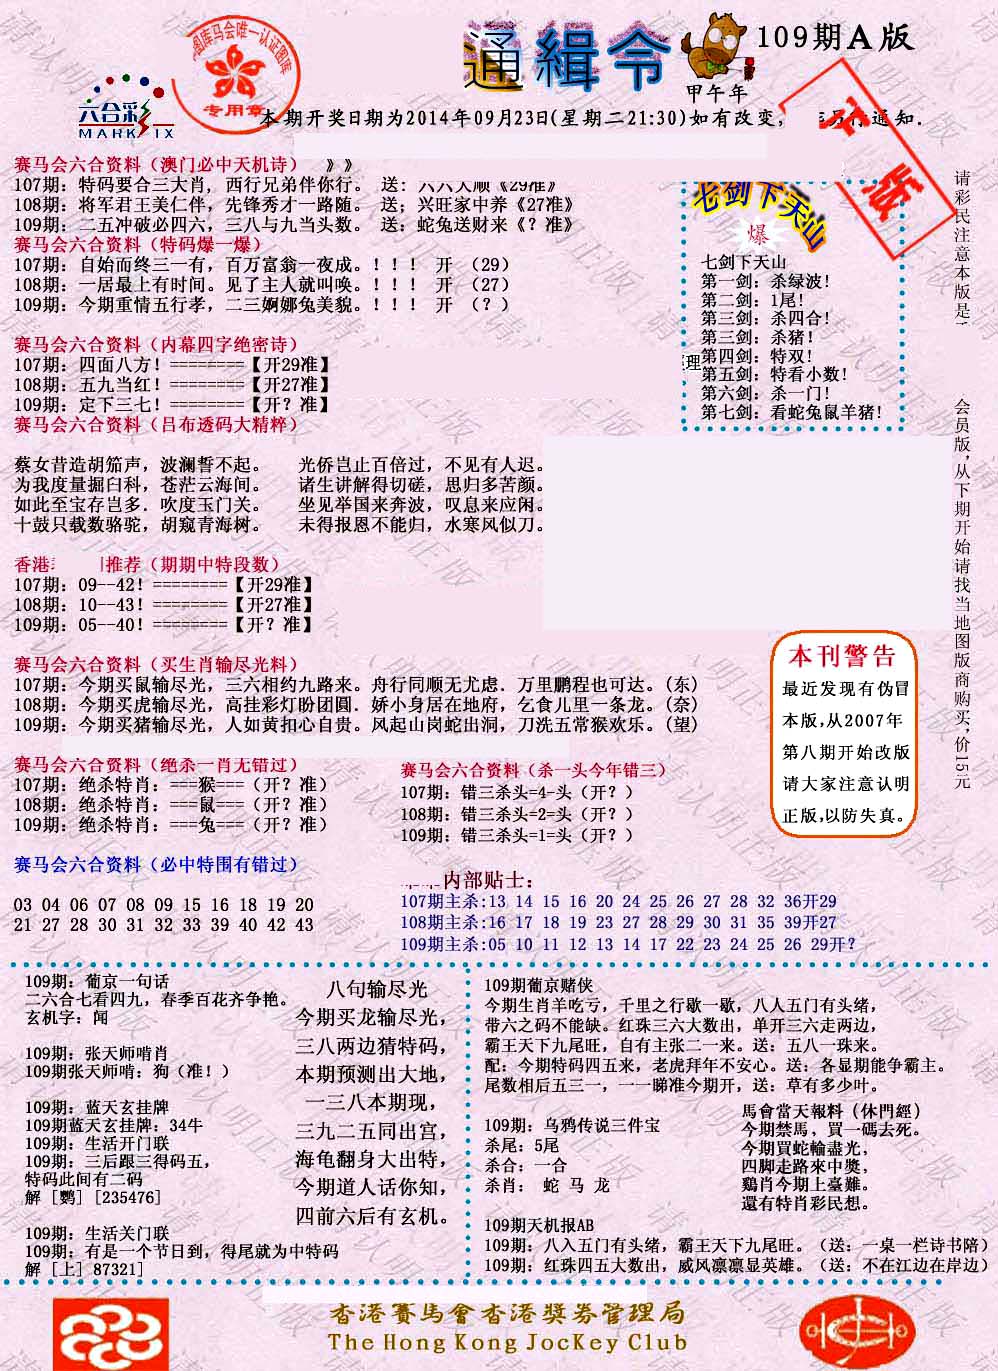 通緝令
109期A版
甲午年
图库马会唯一认证图库
专用章
六合彩
MARK SIX
正版
本期开奖日期为2014年09月23日(星期二21:30)如有改变, 通知.
赛马会六合资料（澳门必中天机诗） 》》
107期：特码要合三大肖, 西行兄弟伴你行。 送：六六大顺《29准》
108期：将军君王美仁伴, 先锋秀才一路随。 送；兴旺家中养《27准》
109期：二五冲破必四六, 三八与九当头数。 送；蛇兔送财来《？准》
赛马会六合资料（特码爆一爆）
107期：自始而终三一有, 百万富翁一夜成。！！！ 开 （29）
108期：一居最上有时间。见了主人就叫唤。！！！ 开 （27）
109期：今期重情五行孝, 二三婀娜兔美貌。！！！ 开 （？）
赛马会六合资料（内幕四字绝密诗）
107期：四面八方！========【开29准】
108期：五九当红！========【开27准】
109期：定下三七！========【开？准】
赛马会六合资料（吕布透码大精粹）
蔡女昔造胡笳声, 波澜誓不起。 光侨岂止百倍过, 不见有人迟。
为我度量掘臼科, 苍茫云海间。 诸生讲解得切磋, 思归多苦颜。
如此至宝存岂多. 吹度玉门关。 坐见举国来奔波, 叹息来应闲。
十鼓只载数骆驼, 胡窥青海树。 未得报恩不能归, 水寒风似刀。
香港 推荐（期期中特段数）
107期：09--42！========【开29准】
108期：10--43！========【开27准】
109期：05--40！========【开？准】
赛马会六合资料（买生肖输尽光料）
107期：今期买鼠输尽光, 三六相约九路来。舟行同顺无尤虑．万里鹏程也可达。(东)
108期：今期买虎输尽光, 高挂彩灯盼团圆．娇小身居在地府, 乞食儿里一条龙。(奈)
109期：今期买猪输尽光, 人如黄扣心自贵。风起山岗蛇出洞, 刀洗五常猴欢乐。(望)
赛马会六合资料（绝杀一肖无错过）
107期：绝杀特肖：===猴===（开？准）
108期：绝杀特肖：===鼠===（开？准）
109期：绝杀特肖：===兔===（开？准）
赛马会六合资料（杀一头今年错三）
107期：错三杀头=4-头（开？）
108期：错三杀头=2=头（开？）
109期：错三杀头=1=头（开？）
赛马会六合资料（必中特围有错过）
03 04 06 07 08 09 15 16 18 19 20
21 27 28 30 31 32 33 39 40 42 43
内部贴士：
107期主杀:13 14 15 16 20 24 25 26 27 28 32 36开29
108期主杀:16 17 18 19 23 27 28 29 30 31 35 39开27
109期主杀:05 10 11 12 13 14 17 22 23 24 25 26 29开？
七剑下天山
爆
七剑下天山
第一剑：杀绿波！
第二剑：1尾！
第三剑：杀四合！
第三剑：杀猪！
第四剑：特双！
第五剑：特看小数！
第六剑：杀一门！
第七剑：看蛇兔鼠羊猪！
理
请彩民注意本版是
会员版,从下期开始请找当地图版商购买,价15元
本刊警告
最近发现有伪冒
本版,从2007年
第八期开始改版
请大家注意认明
正版,以防失真。
109期：葡京一句话
二六合七看四九, 春季百花齐争艳。
玄机字：闻
109期：张天师啃肖
109期张天师啃：狗（准！）
109期：蓝天玄挂牌
109期蓝天玄挂牌：34牛
109期：生活开门联
109期：三后跟三得码五,
特码此间有二码
解 [鹦] [235476]
109期：生活关门联
109期：有是一个节日到, 得尾就为中特码
解 [上] 87321]
八句输尽光
今期买龙输尽光,
三八两边猜特码,
本期预测出大地,
一三八本期现,
三九二五同出宫,
海龟翻身大出特,
今期道人话你知,
四前六后有玄机。
109期葡京赌侠
今期生肖羊吃亏, 千里之行歇一歇, 八人五门有头绪,
带六之码不能缺。红珠三六大数出, 单开三六走两边,
霸王天下九尾旺, 自有主张二一来。送：五八一珠来。
配：今期特码四五来, 老虎拜年不安心。送：各显期能争霸主。
尾数相后五三一, 一一睇准今期开, 送：草有多少叶。
109期：乌鸦传说三件宝
杀尾：5尾
杀合：一合
杀肖： 蛇 马 龙
馬會當天報料（休門經）
今期禁馬, 買一碼去死。
今期買蛇輸盡光,
四脚走路來中獎,
鷄肖今期上臺難。
還有特肖彩民想。
109期天机报AB
109期：八入五门有头绪, 霸王天下九尾旺。（送：一桌一栏诗书陪）
109期：红珠四五大数出, 威风凛凛显英雄。（送：不在江边在岸边）
香港賽馬會香港獎券管理局
The Hong Kong JocKey Club
请认明正版